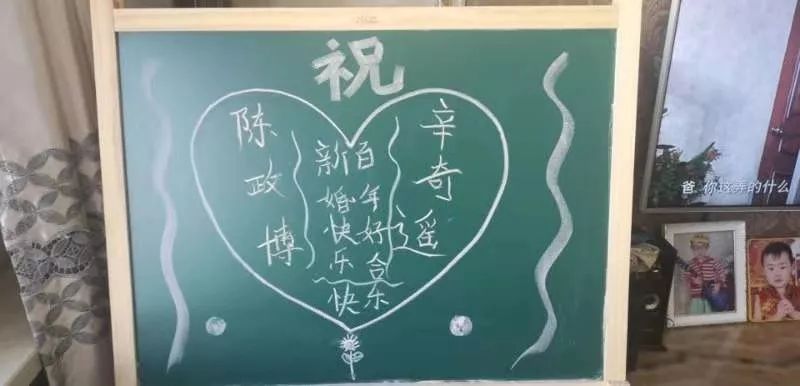 祝
陈政博
新婚快乐
百年好合
辛奇遥
快乐
爸,你这弄的什么